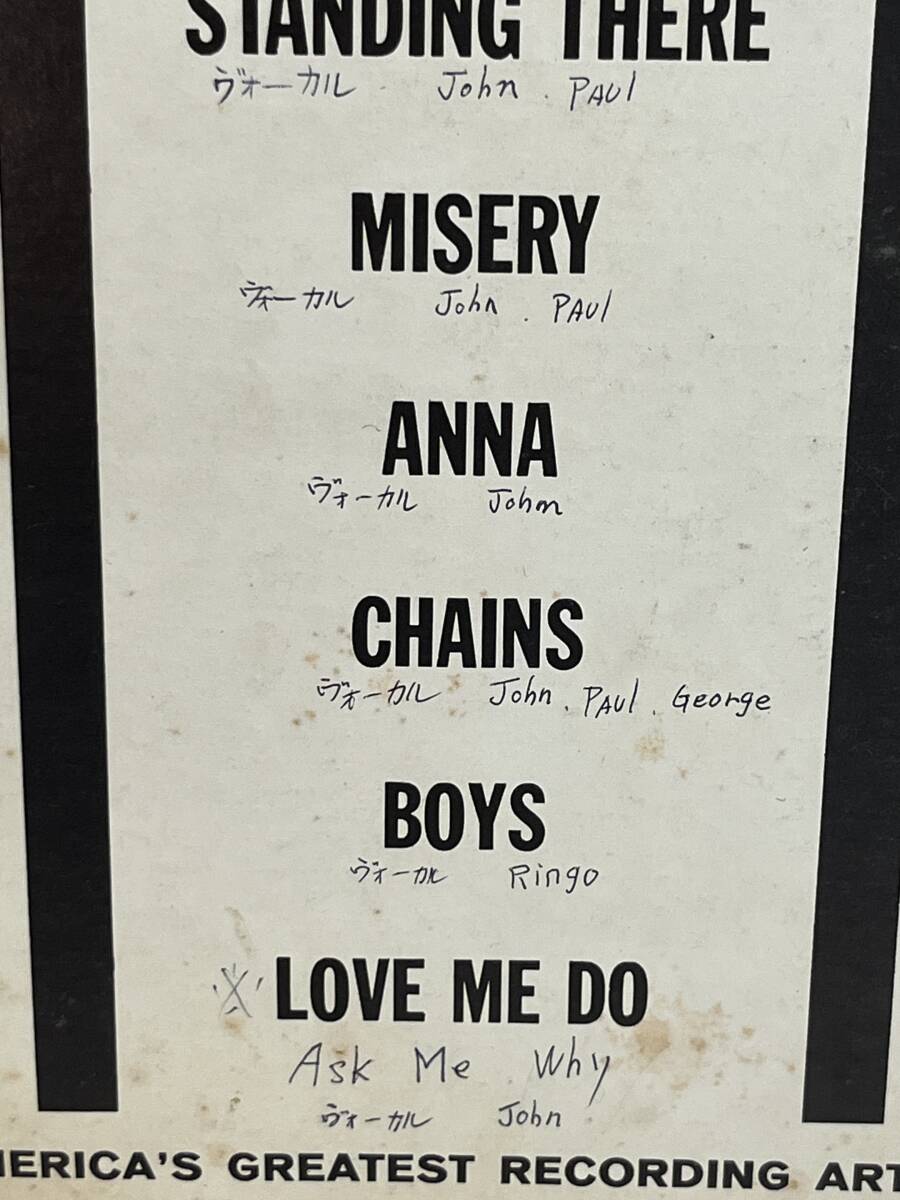 STANDING THERE
ヴォーカル John . PAUl
MISERY
ヴォーカル John . PAUl
ANNA
ヴォーカル John
CHAINS
ヴォーカル John . PAUl . George
BOYS
ヴォーカル Ringo
※ LOVE ME DO
Ask Me Why
ヴォーカル John
MERICA'S GREATEST RECORDING ART